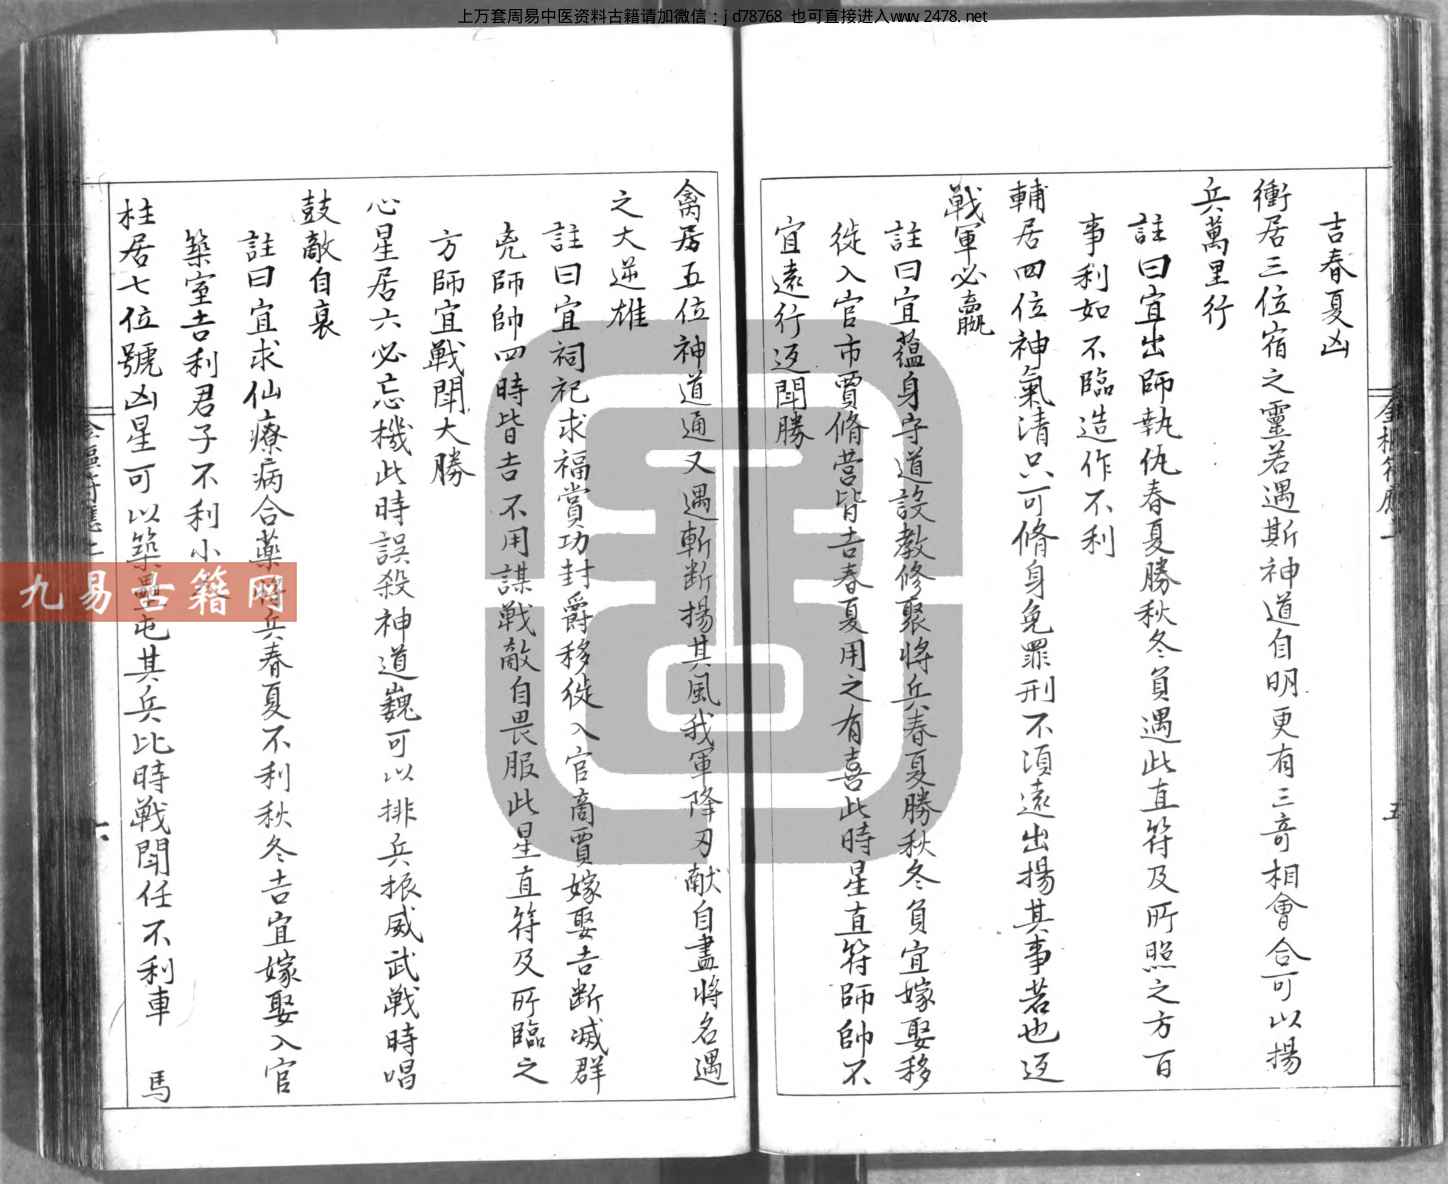 上万套周易中医资料古籍请加微信：jd78768 也可直接进入www.2478.net
吉春夏凶
衝居三位宿之靈若遇斯神道自明更有三奇相會合可以揚
兵萬里行
註曰宜出師執仇春夏勝秋冬負遇此直符及所照之方百
事利如不臨造作不利
輔居四位神氣清只可脩身免罪刑不須遠出揚其事若也逥
戰軍必贏
註曰宜蘊身守道設教修聚將兵春夏勝秋冬負宜嫁娶移
徙入官市賈脩营皆吉春夏用之有喜此時星直符師帥不
宜遠行逥鬪勝
五
禽居五位神道通又遇斬断揚其風我軍降刃献自盡將名遇
之大逆雄
註曰宜祠祀求福賞功封爵移徙入官商賈嫁娶吉断滅群
尭師帥四時皆吉不用謀戰敵自畏服此星直符及所臨之
方師宜戰鬪大勝
心星居六必忘機此時誤殺神道巍可以排兵振威武戰時唱
鼓敵自衰
註曰宜求仙療病合藥將兵春夏不利秋冬吉宜嫁娶入官
築室吉利君子不利小
柱居七位號凶星可以築壘屯其兵比時戰鬪任不利車 馬
六
九易古籍网